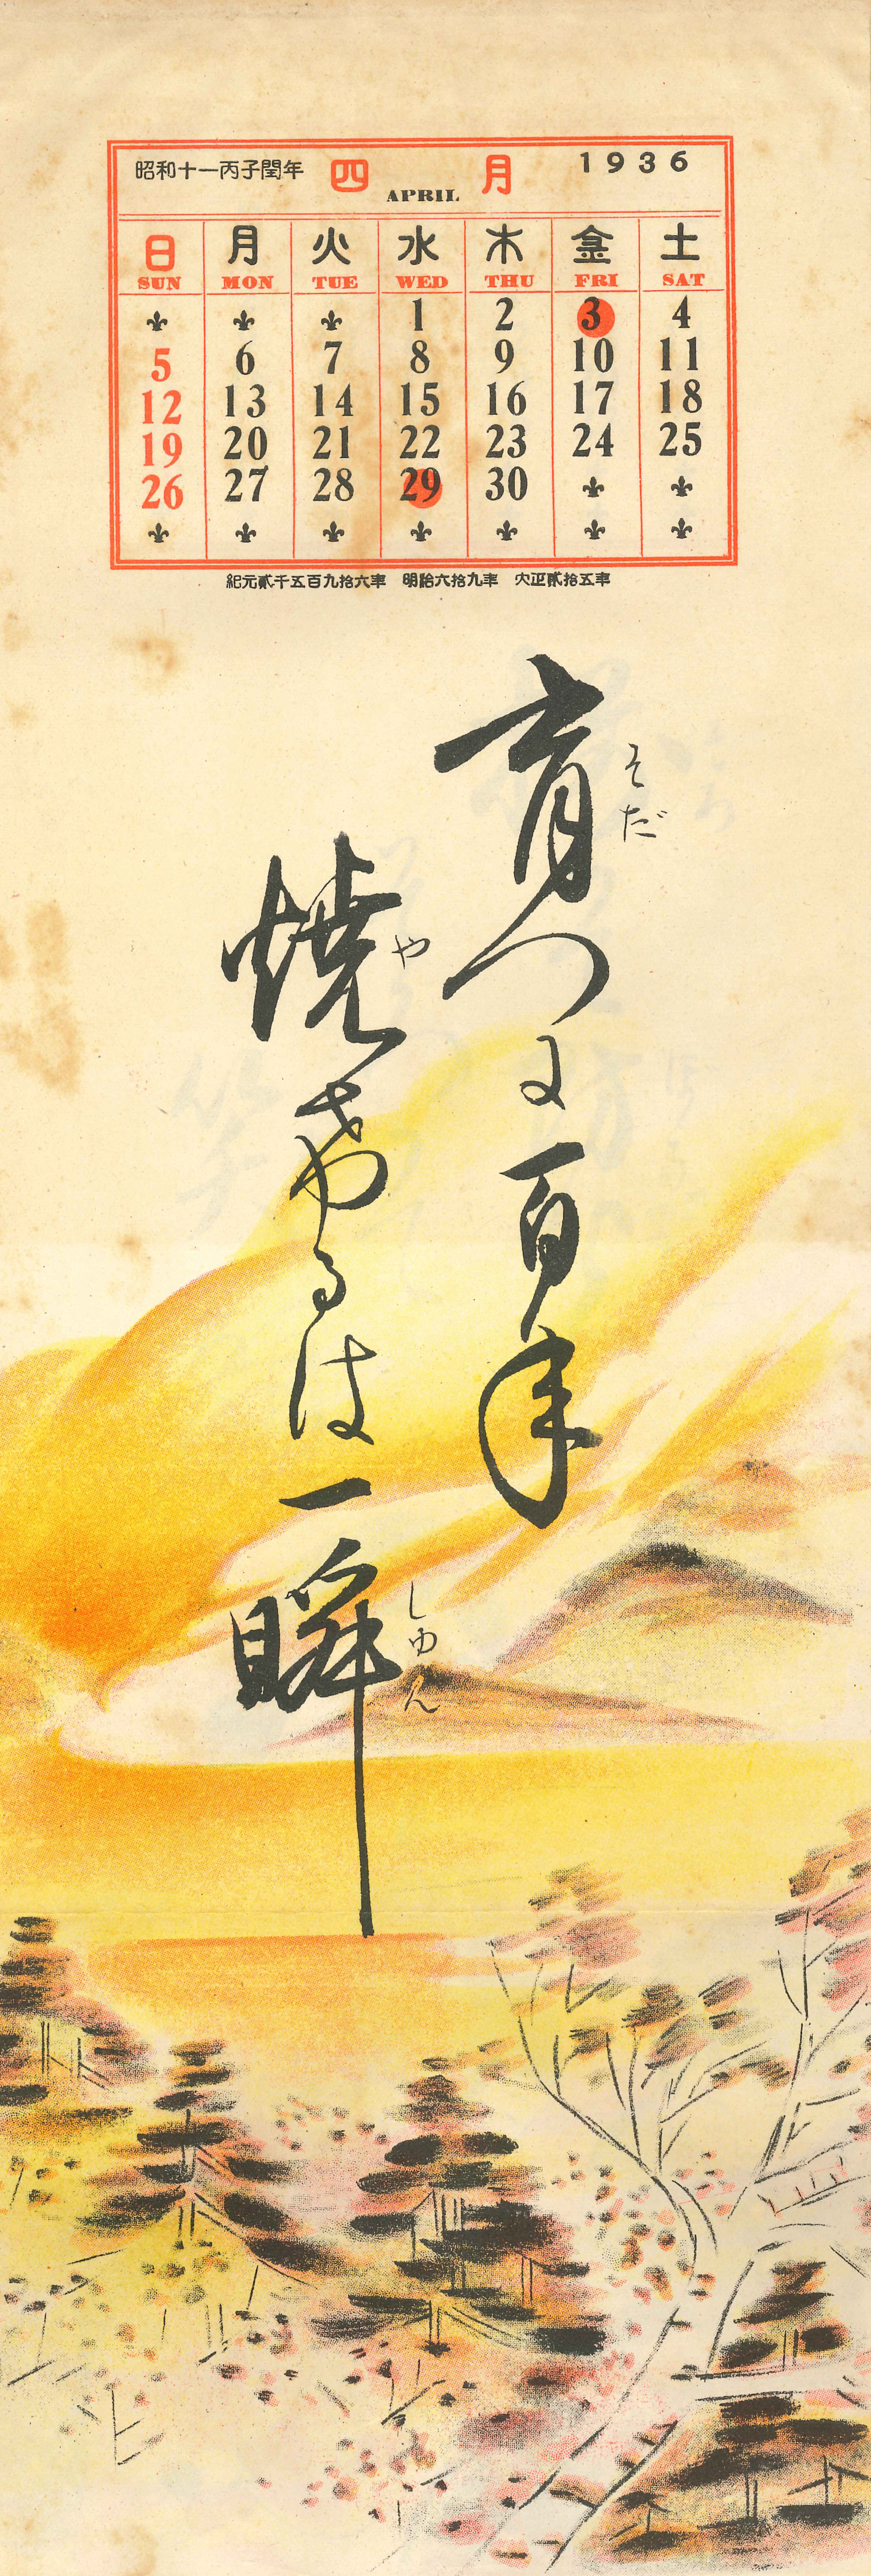 昭和十一丙子閏年 四月 1936
APRIL
日 月 火 水 木 金 土
SUN MON TUE WED THU FRI SAT
1 2 3 4
5 6 7 8 9 10 11
12 13 14 15 16 17 18
19 20 21 22 23 24 25
26 27 28 29 30
紀元貳千五百九拾六年 明治六拾九年 大正貳拾五年
育つに百年
そだ
焼
や
るは一瞬
しゆん